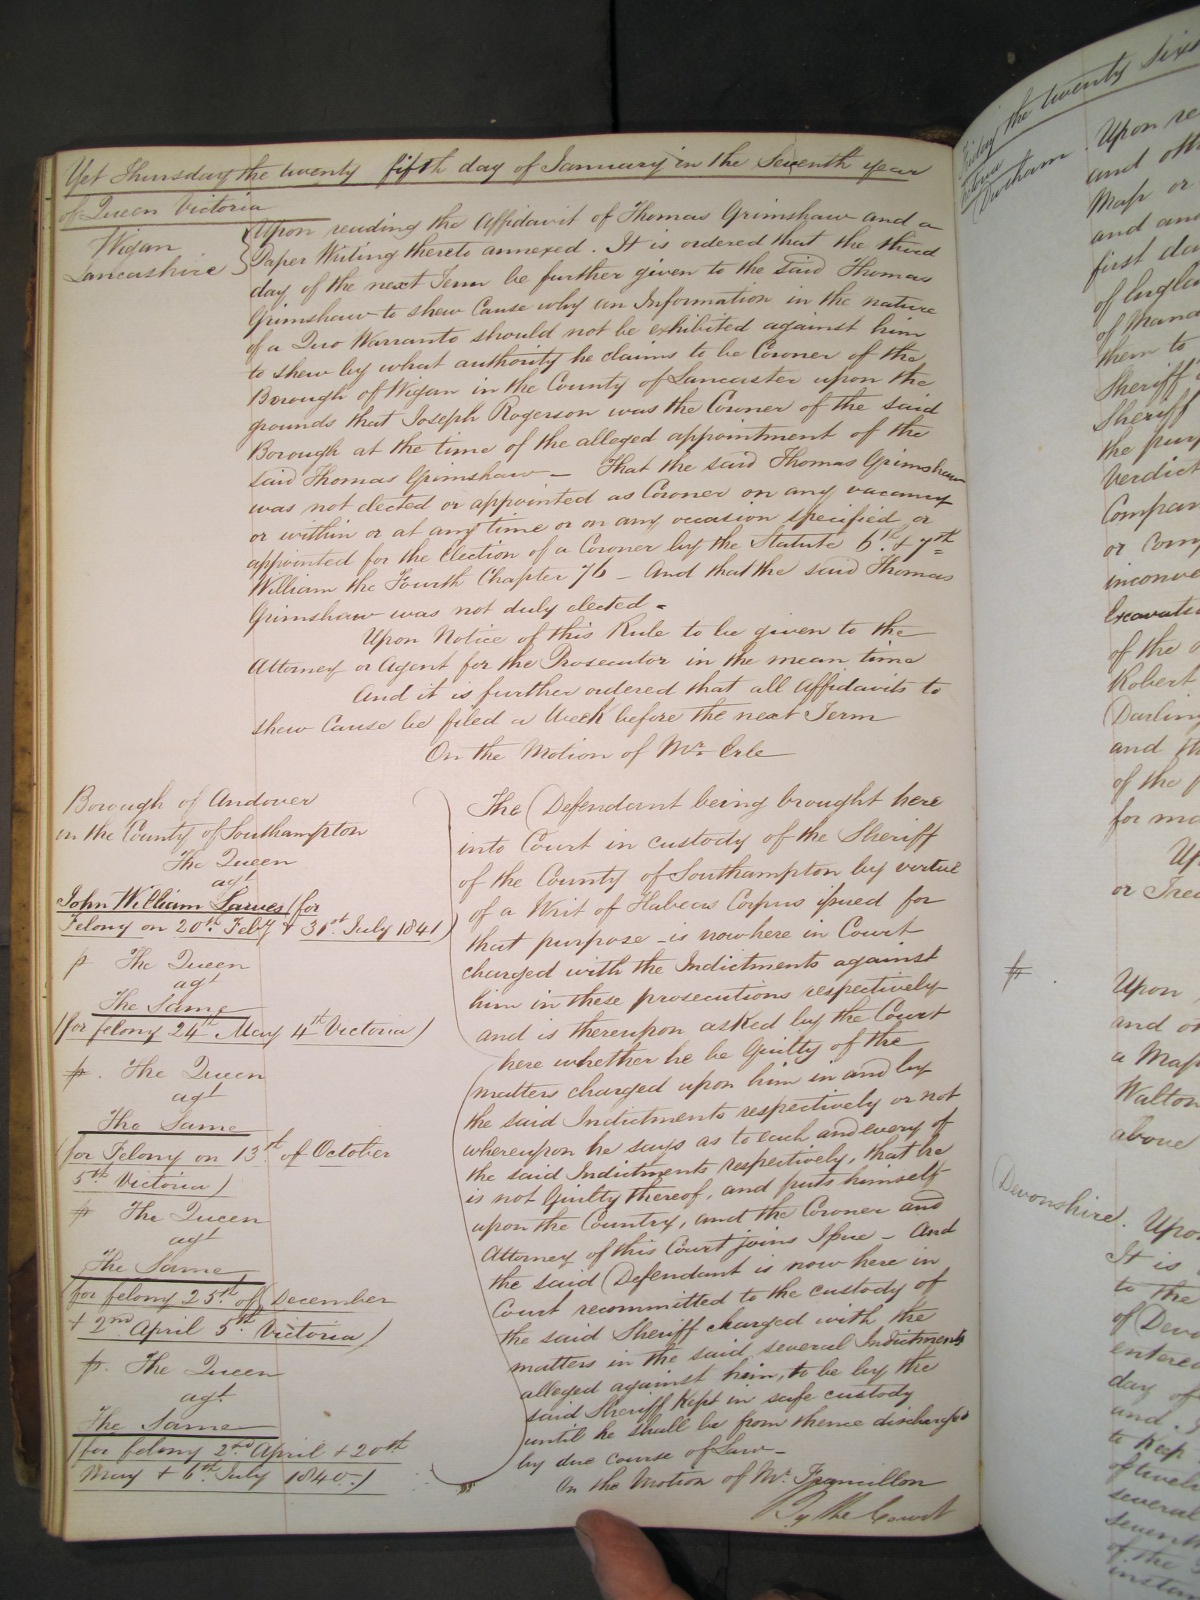 Yet Thursday the twenty fifth day of January in the Seventh year
of Queen Victoria
Wigan
Lancashire
Upon reading the Affidavit of Thomas Grimshaw and a
Paper Writing thereto annexed. It is ordered that the third
day of the next Term be further given to the said Thomas
Grimshaw to shew Cause why an Information in the nature
of a Quo Warranto should not be exhibited against him
to shew by what authority he claims to be Coroner of the
Borough of Wigan in the County of Lancaster upon the
grounds that Joseph Rogerson was the Coroner of the said
Borough at the time of the alleged appointment of the
said Thomas Grimshaw — That the said Thomas Grimshaw
was not elected or appointed as Coroner on any vacancy
or within or at any time or on any occasion specified or
appointed for the Election of a Coroner by the Statute 6th & 7th
William the Fourth Chapter 76 – And that the said Thomas
Grimshaw was not duly elected -
Upon Notice of this Rule to be given to the
Attorney or Agent for the Prosecutor in the mean time
And it is further ordered that all Affidavits to
shew Cause be filed a Week before the next Term
On the Motion of Mr. Erle
Borough of Andover
in the County of Southampton
The Queen
agt
John William (for
Felony on 20th Feby & 31st July 1841)
p The Queen
agt
The Same
(for felony 24th May 4th Victoria)
p. The Queen
agt
The Same
(for Felony on 13th of October
5th Victoria)
p The Queen
agt
The Same
(for felony 25th of December
& 2nd April 5th Victoria)
p. The Queen
agt.
The Same
(for felony 2nd April & 20th
May & 6th July 1840.)
The Defendant being brought here
into Court in custody of the Sheriff
of the County of Southampton by virtue
of a Writ of Habeas Corpus issued for
that purpose – is now here in Court
charged with the Indictments against
him in these prosecutions respectively
and is thereupon asked by the Court
here whether he be Guilty of the
matters charged upon him in and by
the said Indictments respectively or not
whereupon he says as to each and every of
the said Indictments respectively, that he
is not Guilty thereof, and puts himself
upon the Country, and the Coroner and
Attorney of this Court joins Issue – And
the said Defendant is now here in
Court recommitted to the custody of
the said Sheriff charged with the
matters in the said several Indictments
alleged against him, to be by the
said Sheriff kept in safe custody
until he shall be from thence discharged
by due course of Law –
On the Motion of Mr.
By the Court
Friday the twenty Sixt
Durham
Upon re
and oth
Map or
and an
first da
of Engla
of Manda
them to
Sheriff
Sheriff
the purp
Verdict
Compan
or comp
inconve
Excavati
of the
Robert
Darling
and th
of the
for ma
Up
or Trea
p
Upon
and ot
a Map
Walton
above
Devonshire.
Upo
It is
to the
of Devo
entered
day of
and
to keep
of
several
seventh
of the
instan